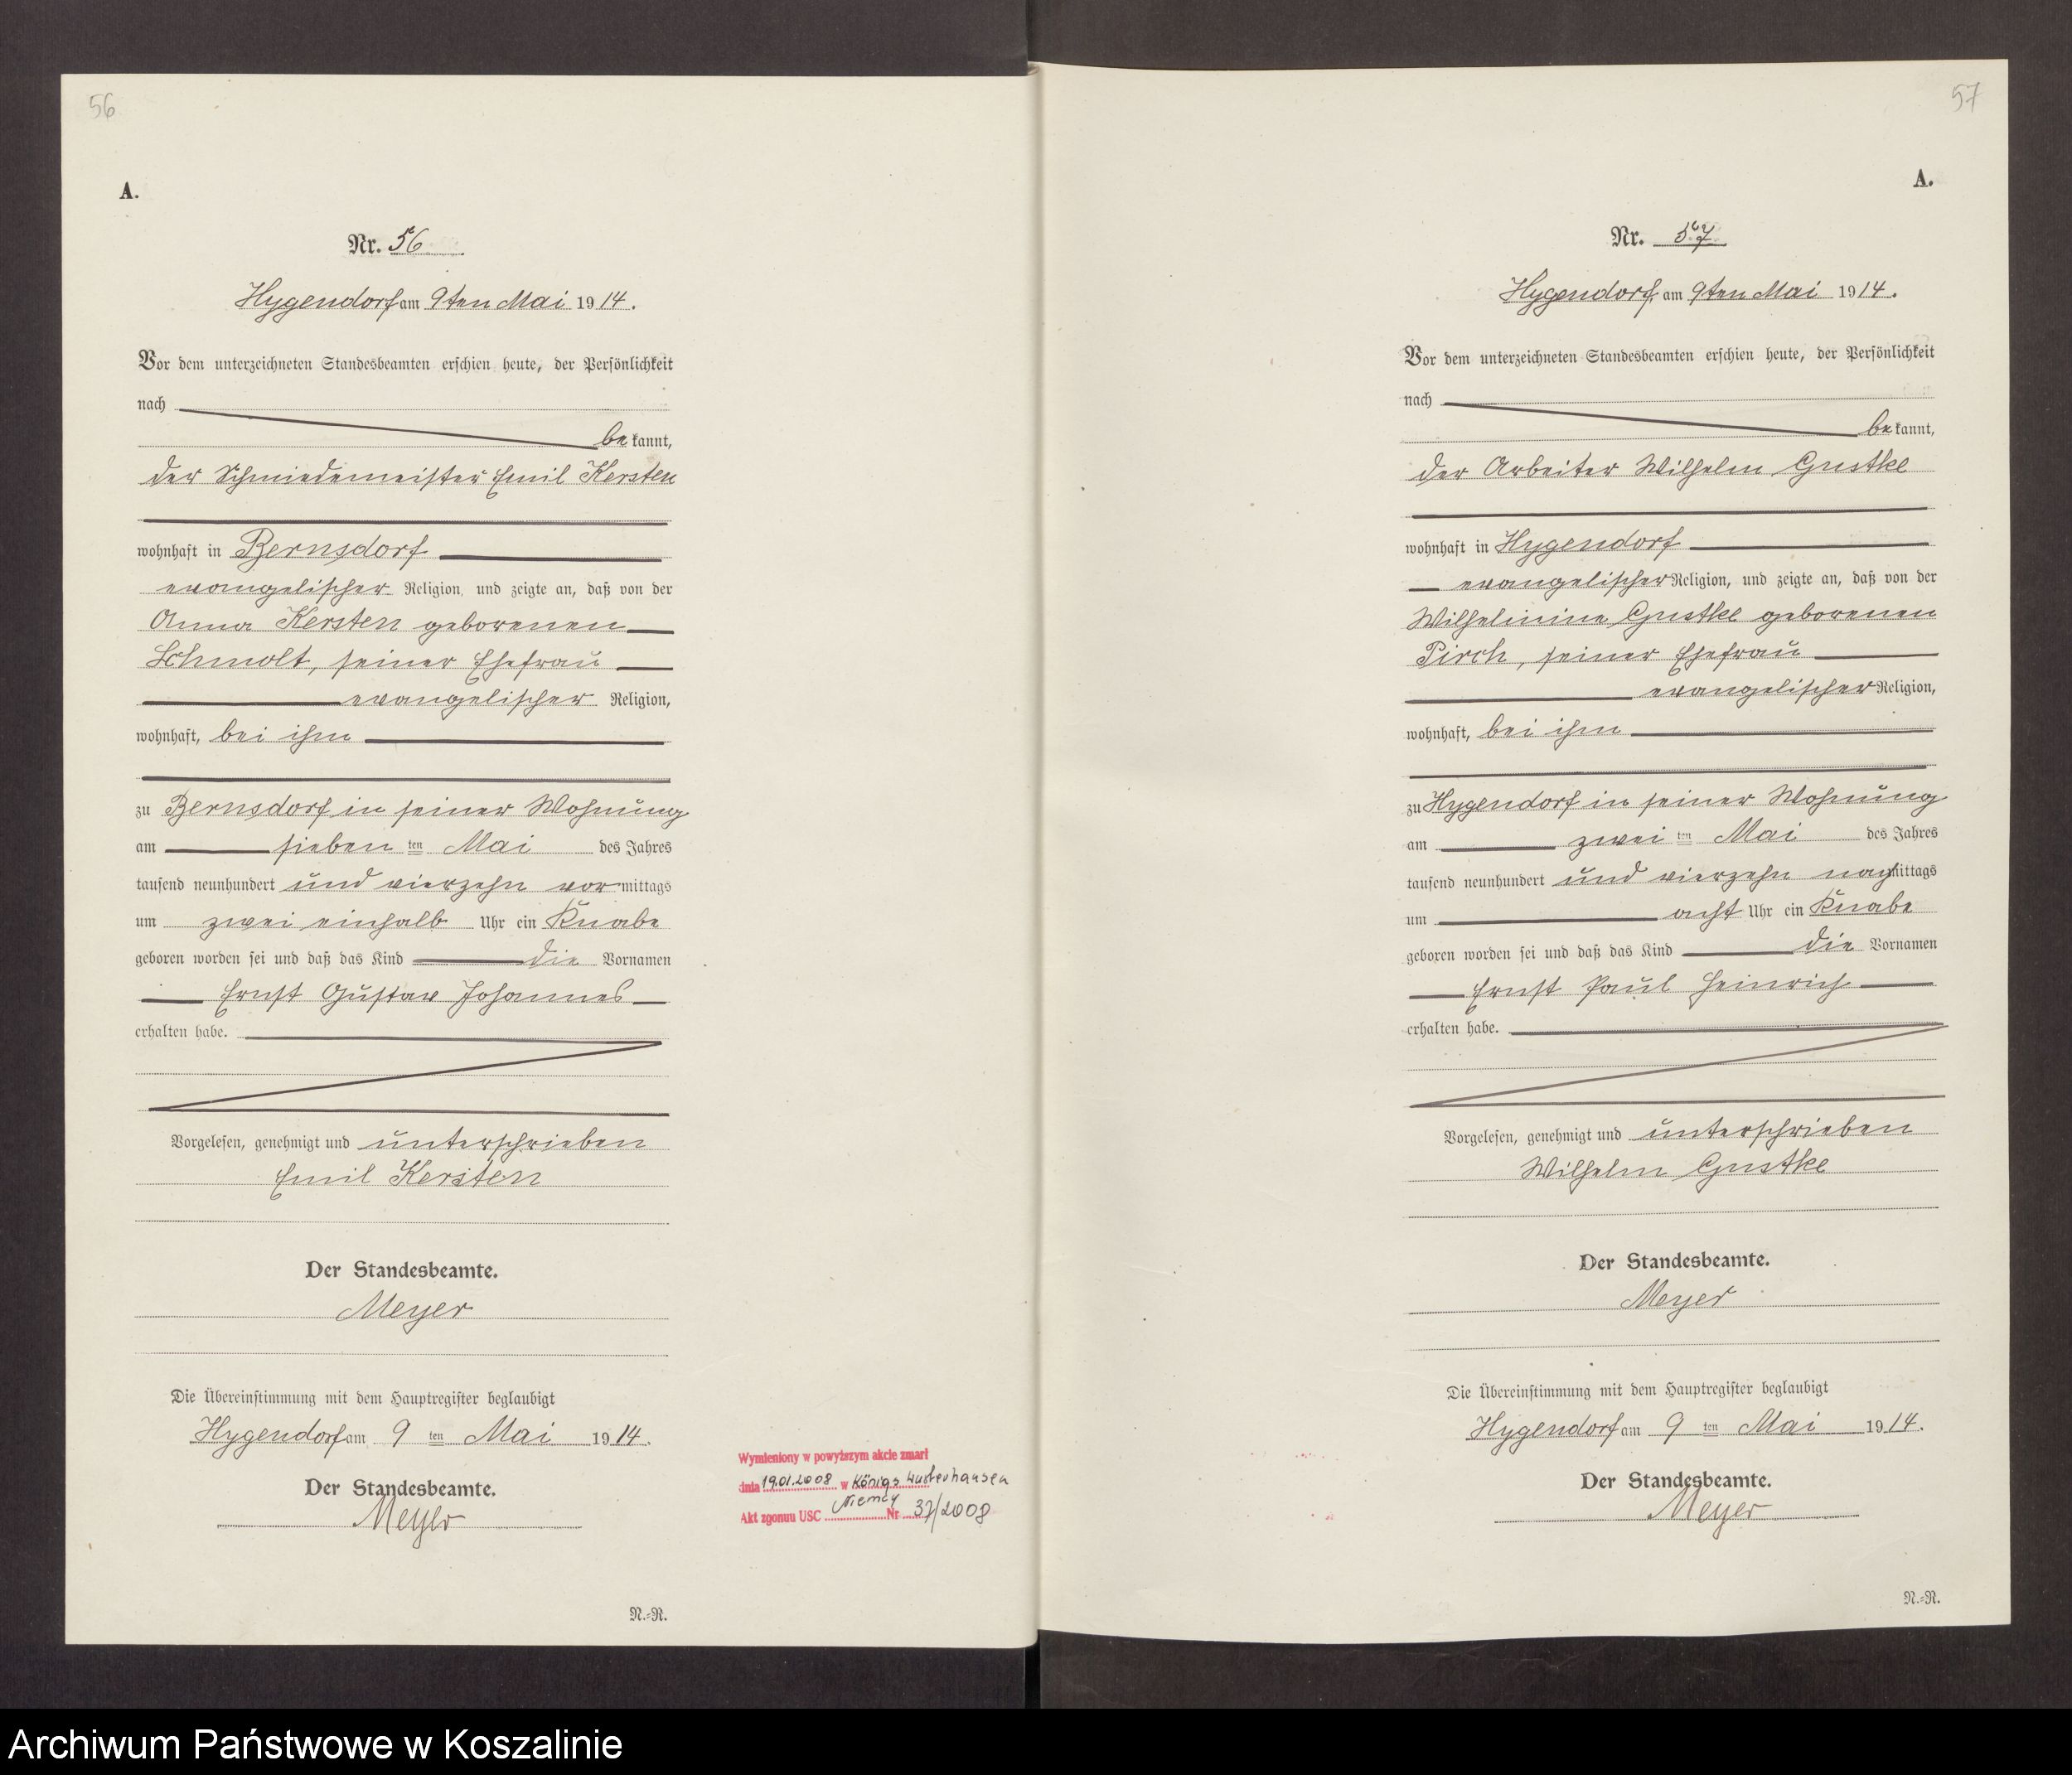 56
A.
Nr. 56
Hygendorf am 9ten Mai 1914.
Vor dem unterzeichneten Standesbeamten erschien heute, der Persönlichkeit
nach
bekannt,
der Schmiedemeister Emil Kersten
wohnhaft in Bernsdorf
evangelischer Religion, und zeigte an, daß von der
Anna Kersten geborenen
Schmolt, seiner Ehefrau
evangelischer Religion,
wohnhaft, bei ihm
zu Bernsdorf in seiner Wohnung
am sieben ten Mai des Jahres
tausend neunhundert und vierzehn vormittags
um zwei einhalb Uhr ein Knabe
geboren worden sei und daß das Kind die Vornamen
Ernst Gustav Johannes
erhalten habe.
Vorgelesen, genehmigt und unterschrieben
Emil Kersten
Der Standesbeamte.
Meyer
Die Übereinstimmung mit dem Hauptregister beglaubigt
Hygendorf am 9 ten Mai 1914.
Der Standesbeamte.
Meyer
N.-R.
Wymieniony w powyższym akcie zmarł
dnia 19.01.2008 w Königs Wusterhausen
Niemcy
Akt zgonuu USC Nr 37/2008
57
A.
Nr. 57
Hygendorf am 9ten Mai 1914.
Vor dem unterzeichneten Standesbeamten erschien heute, der Persönlichkeit
nach
bekannt,
der Arbeiter Wilhelm Gustke
wohnhaft in Hygendorf
evangelischer Religion, und zeigte an, daß von der
Wilhelmine Gustke geborenen
Pirch, seiner Ehefrau
evangelischer Religion,
wohnhaft, bei ihm
zu Hygendorf in seiner Wohnung
am zwei ten Mai des Jahres
tausend neunhundert und vierzehn nachmittags
um acht Uhr ein Knabe
geboren worden sei und daß das Kind die Vornamen
Ernst Paul Heinrich
erhalten habe.
Vorgelesen, genehmigt und unterschrieben
Wilhelm Gustke
Der Standesbeamte.
Meyer
Die Übereinstimmung mit dem Hauptregister beglaubigt
Hygendorf am 9 ten Mai 1914.
Der Standesbeamte.
Meyer
N.-R.
Archiwum Państwowe w Koszalinie